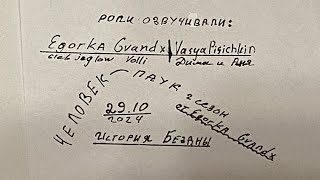 РОЛИ ОЗВУЧИВАЛИ:
Egorka Gvandx
VasyaPisichkin
Gleb Jeglow
Volli
Дима и Рыня
ЧЕЛОВЕК – ПАУК
2 СЕЗОН
29.10
2024
от Egorka Gvandx
ИСТОРИЯ БЕЗДНЫ